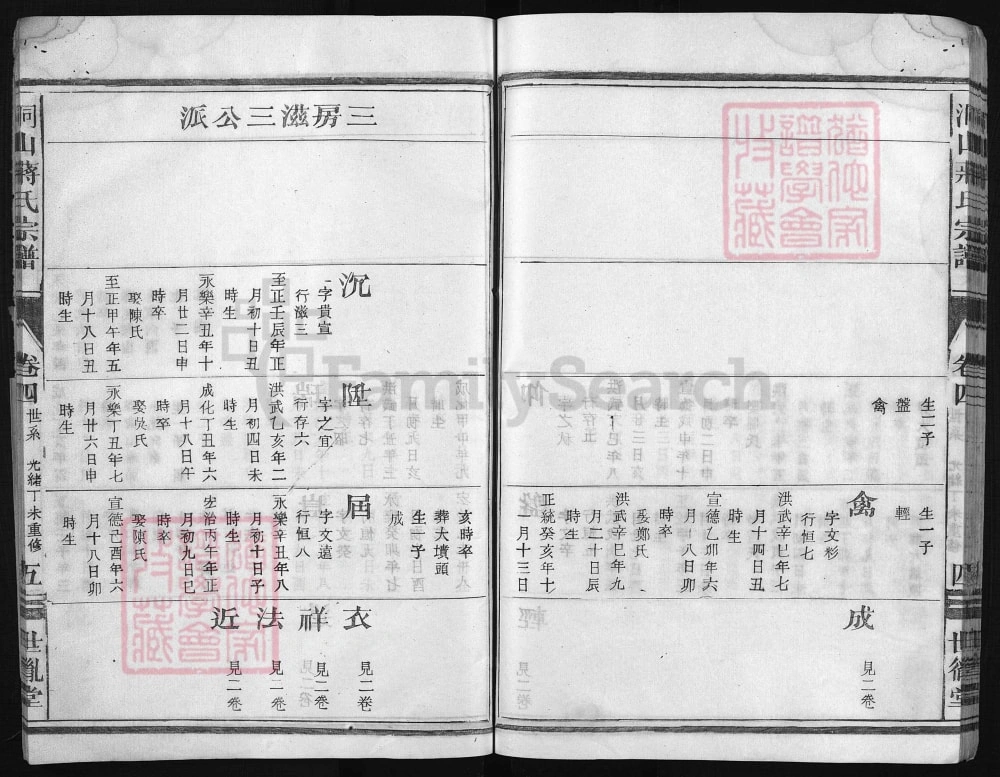 洞山蔣氏宗譜
卷四
四
世德堂
生二子
盤
禽
生一子
輕
禽
字文杉
行恒七
洪武辛巳年七
月十四日丑
時生
宣德乙卯年六
月八日卯
時卒
娶鄭氏
洪武辛巳年九
月二十日辰
時生
正統癸亥年十
一月十三日
亥時卒
葬大墳頭
生一子
成
成
見二卷
三房滋三公派
沉
字貴宣
行滋三
至正壬辰年正
月初十日丑
時生
永樂辛丑年十
月廿二日申
時卒
娶陳氏
至正甲午年五
月十八日丑
時生
陞
字之宜
行存六
洪武乙亥年二
月初四日未
時生
成化丁丑年六
月十八日午
時卒
娶吳氏
永樂丁丑年七
月廿六日申
時生
届
字文遠
行恒八
永樂辛丑年八
月初十日子
時生
宏治丙午年正
月初九日巳
時卒
娶陳氏
宣德己酉年六
月十八日卯
時生
衣
見二卷
祥
見二卷
法
見二卷
近
見二卷
洞山蔣氏宗譜
卷四
世系
光緒丁未重修
五
世胤堂
FamilySearch